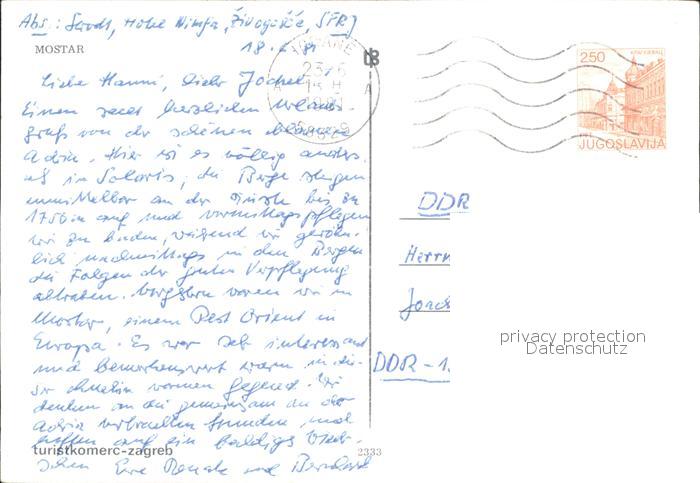 Abs.: Sandt, Hotel Nimfa, Živogošće, SFRJ
MOSTAR
18.6.81
Liebe Hanni, lieber Jochen
Einen recht herzlichen Urlaubs-
gruß von der schönen blauen
Adria. Hier ist es völlig anders
als in Solaris, die Berge steigen
unmittelbar an der Küste bis zu
1750 m auf und vormittags pflegen
wir zu baden, während wir gewöhn-
lich nachmittags in den Bergen
die Folgen der guten Verpflegung
abtraben. Vorgestern waren wir in
Mostar, einem Rest Orient in
Europa. Es war sehr interessant
und bemerkenswert warm in die-
ser ohnehin warmen Gegend. Wir
denken an die gemeinsam an der
Adria verbrachten Stunden und
hoffen auf ein baldiges Wieder-
sehen Eure Renate und Bernhard
turistkomerc-zagreb
2333
250
JUGOSLAVIJA
DDR
Herrn
Joach
DDR - 1
privacy protection
Datenschutz